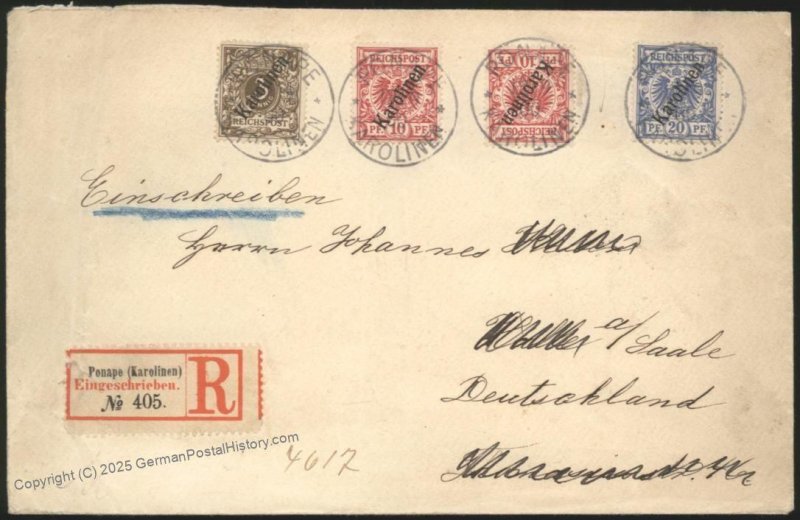 Karolinen
REICHSPOST
REICHSPOST
Karolinen
PF 10 PF
KAROLINEN
REICHSPOST
Karolinen
PF 10 PF
REICHSPOST
Karolinen
PF 20 PF
Einschreiben
Herrn Johannes
a/Saale
Deutschland
Ponape (Karolinen)
Eingeschrieben.
№ 405.
R
4617
Copyright (C) 2025 GermanPostalHistory.com